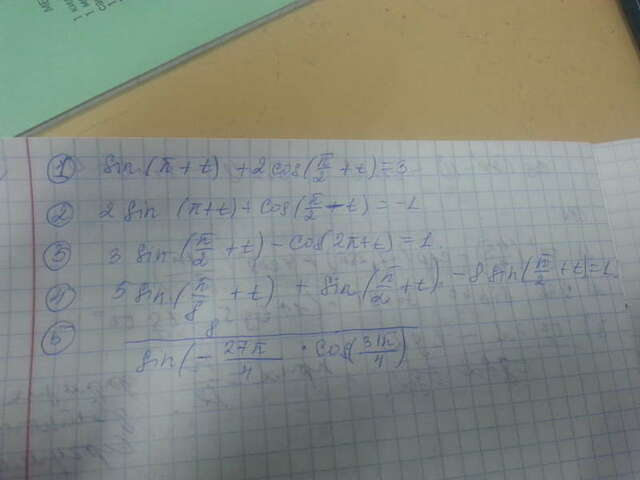 ① sin(π+t)+2cos(π/2+t)=3
② 2 sin (π+t)+cos(π/2-t)=-1
③ 3 sin(π/2+t)-cos(2π+t)=1.
④ 5 sin(π/8+t)+sin(π/2+t)-8 sin(π/2+t)=1
⑤ 8/sin(-27π/4 · cos(31π/4)